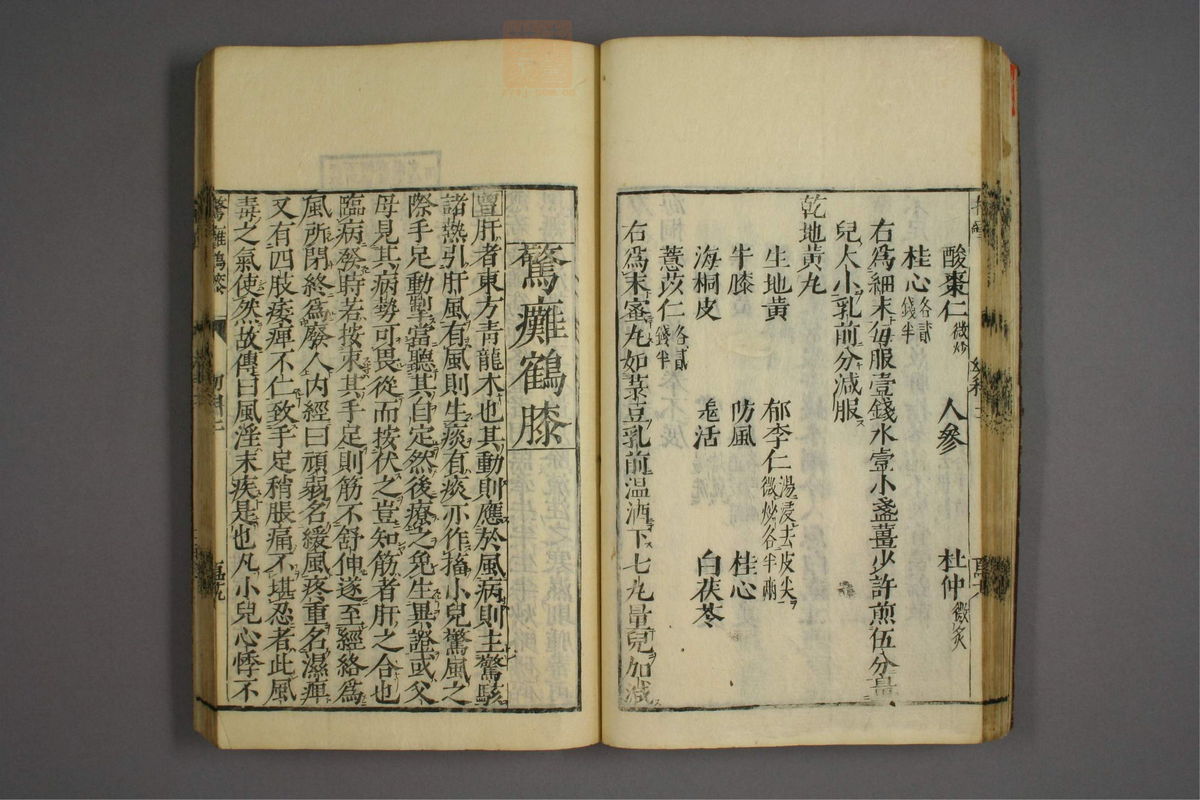 酸棗仁微炒 人參 杜仲微炙
桂心各貳錢半
右爲細末每服壹錢水壹小盞薑少許煎伍分量
兒大小乳前分減服
乾地黃丸
生地黃 郁李仁湯浸去皮尖微炒各半兩
牛膝 防風 桂心
海桐皮 羌活 白茯苓
薏苡仁各貳錢半
右爲末蜜丸如菉豆乳前温酒下七丸量兒加減
驚癱鶴膝
肝者東方青龍木也其動則應於風病則主驚駭
諸熱引肝風有風則生痰有痰亦作搐小兒驚風之
際手足動掣當聽其自定然後療之免生異證或父
母見其病勢可畏從而按伏之豈知筋者肝之合也
臨病發時若按束其手足則筋不舒伸遂至經絡爲
風所閉終爲廢人内經曰頑弱名緩風疼重名濕痺
又有四肢痿痺不仁致手足稍脹痛不堪忍者此風
毒之氣使然故傳曰風淫末疾是也凡小兒心悸不
驚癱鶴膝